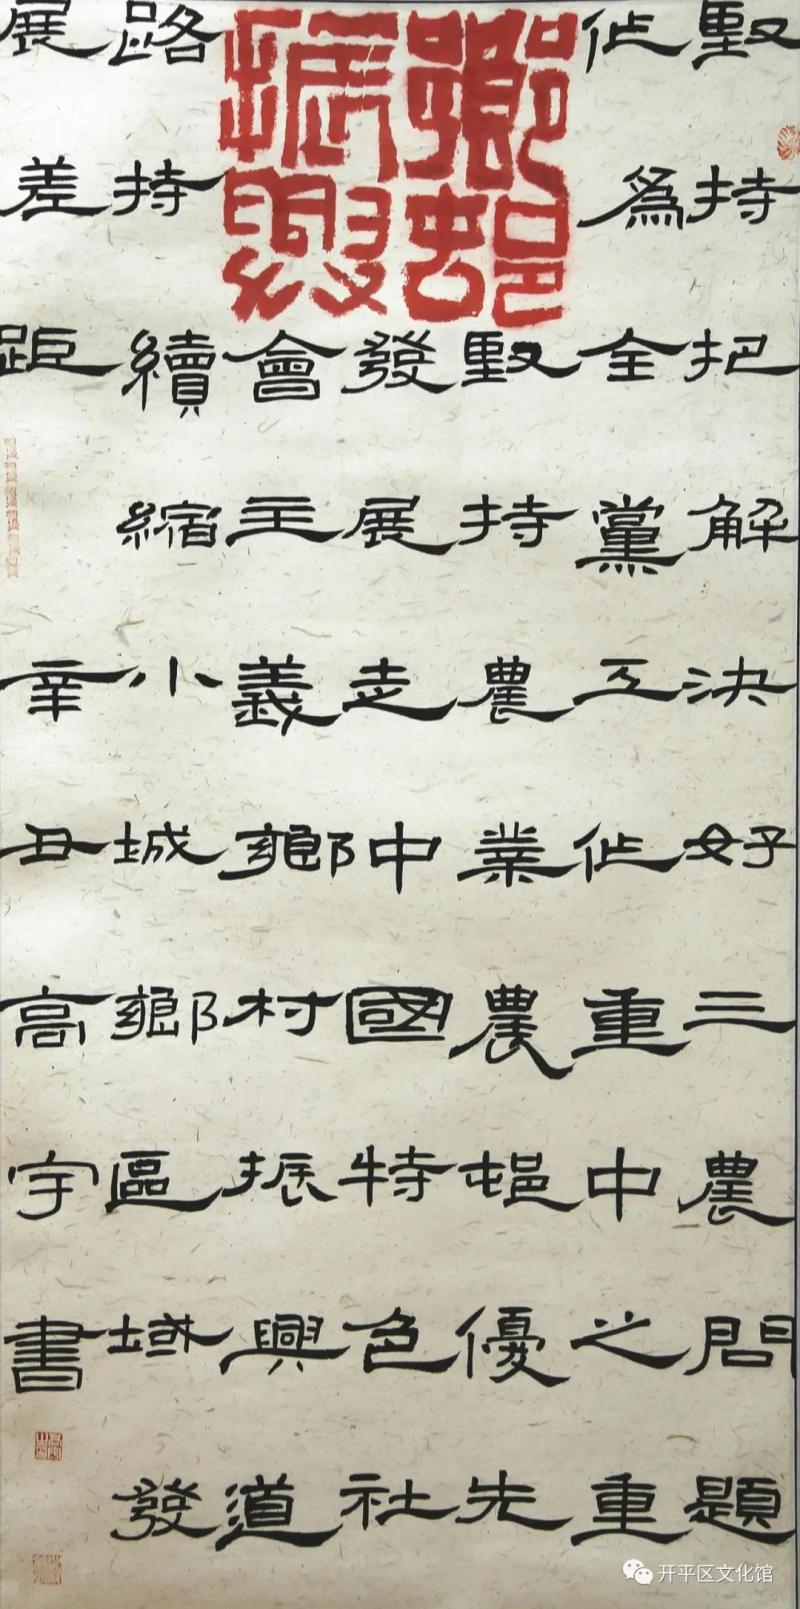 堅持把解決好三農問題
作爲全黨工作重中之重
鄉邨振興
堅持農業農邨優先
發展走中國特色社
會主義鄉村振興道
路持續縮小城鄉區域發
展差距
辛丑高宇書
开平区文化馆